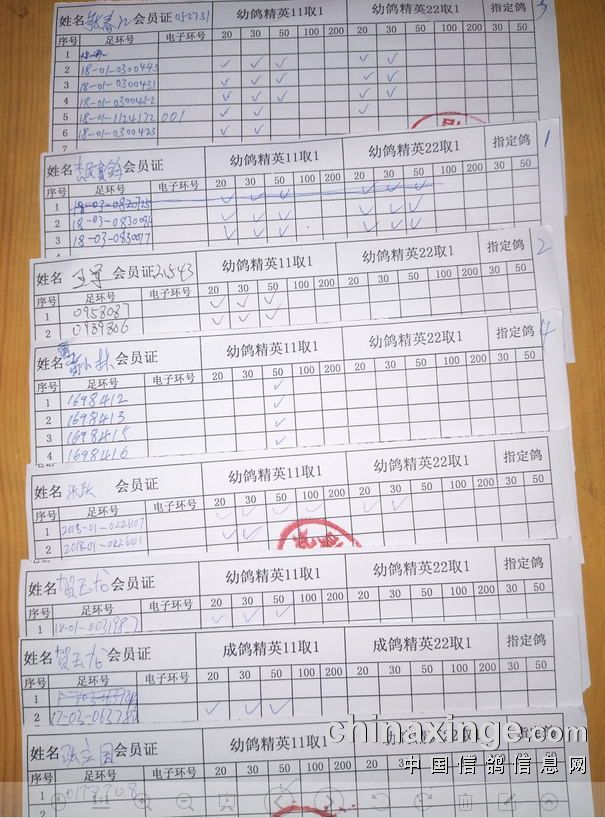 姓名 会员证 052731 幼鸽精英11取1 幼鸽精英22取1 指定鸽 3
序号 足环号 电子环号 20 30 50 100 200 20 30 50 100 200 30 50
1
2 18-01-0300445 ✓ ✓ ✓ ✓ ✓
3 18-01-0300431 ✓ ✓ ✓ ✓ ✓
4 18-01-0300452 ✓ ✓ ✓ ✓ ✓
5 18-01-1124172 001 ✓ ✓ ✓ ✓
6 18-01-0300423 ✓ ✓
7
姓名 会员证 幼鸽精英11取1 幼鸽精英22取1 指定鸽 1
序号 足环号 电子环号 20 30 50 100 200 20 30 50 100 200 30 50
1
2 18-03-083008 ✓ ✓ ✓ ✓ ✓ ✓
3 18-03-0830077 ✓ ✓ ✓ ✓ ✓ ✓
4
姓名 王军 会员证 幼鸽精英11取1 幼鸽精英22取1 指定鸽 2
序号 足环号 电子环号 20 30 50 100 200 20 30 50 100 200 30 50
1 0958087 ✓ ✓ ✓
2 0989806 ✓ ✓ ✓
姓名 小林 会员证 幼鸽精英11取1 幼鸽精英22取1 指定鸽 4
序号 足环号 电子环号 20 30 50 100 200 20 30 50 100 200 30 50
1 1698412 ✓
2 1698413 ✓
3 1698415 ✓
4 1698416 ✓
姓名 张跃 会员证 幼鸽精英11取1 幼鸽精英22取1 指定鸽
序号 足环号 电子环号 20 30 50 100 200 20 30 50 100 200 30 50
1 2018-01-0226107 ✓ ✓ ✓ ✓ ✓ ✓ ✓
2 2018-01-0226101 ✓ ✓
姓名 贺玉龙 会员证 幼鸽精英11取1 幼鸽精英22取1 指定鸽
序号 足环号 电子环号 20 30 50 100 200 20 30 50 100 200 30 50
1 18-01-0031987 ✓ ✓ ✓
姓名 贺玉龙 会员证 成鸽精英11取1 成鸽精英22取1 指定鸽
序号 足环号 电子环号 20 30 50 100 200 20 30 50 100 200 30 50
1
2 17-03-06378 ✓ ✓ ✓
姓名 张立国 会员证 幼鸽精英11取1 幼鸽精英22取1 指定鸽
chinaxinge.com
中国信鸽信息网
序号 足环号 电子环号 20 30 50 100 200 20 30 50 100 200 30 50
1 ✓
1:1